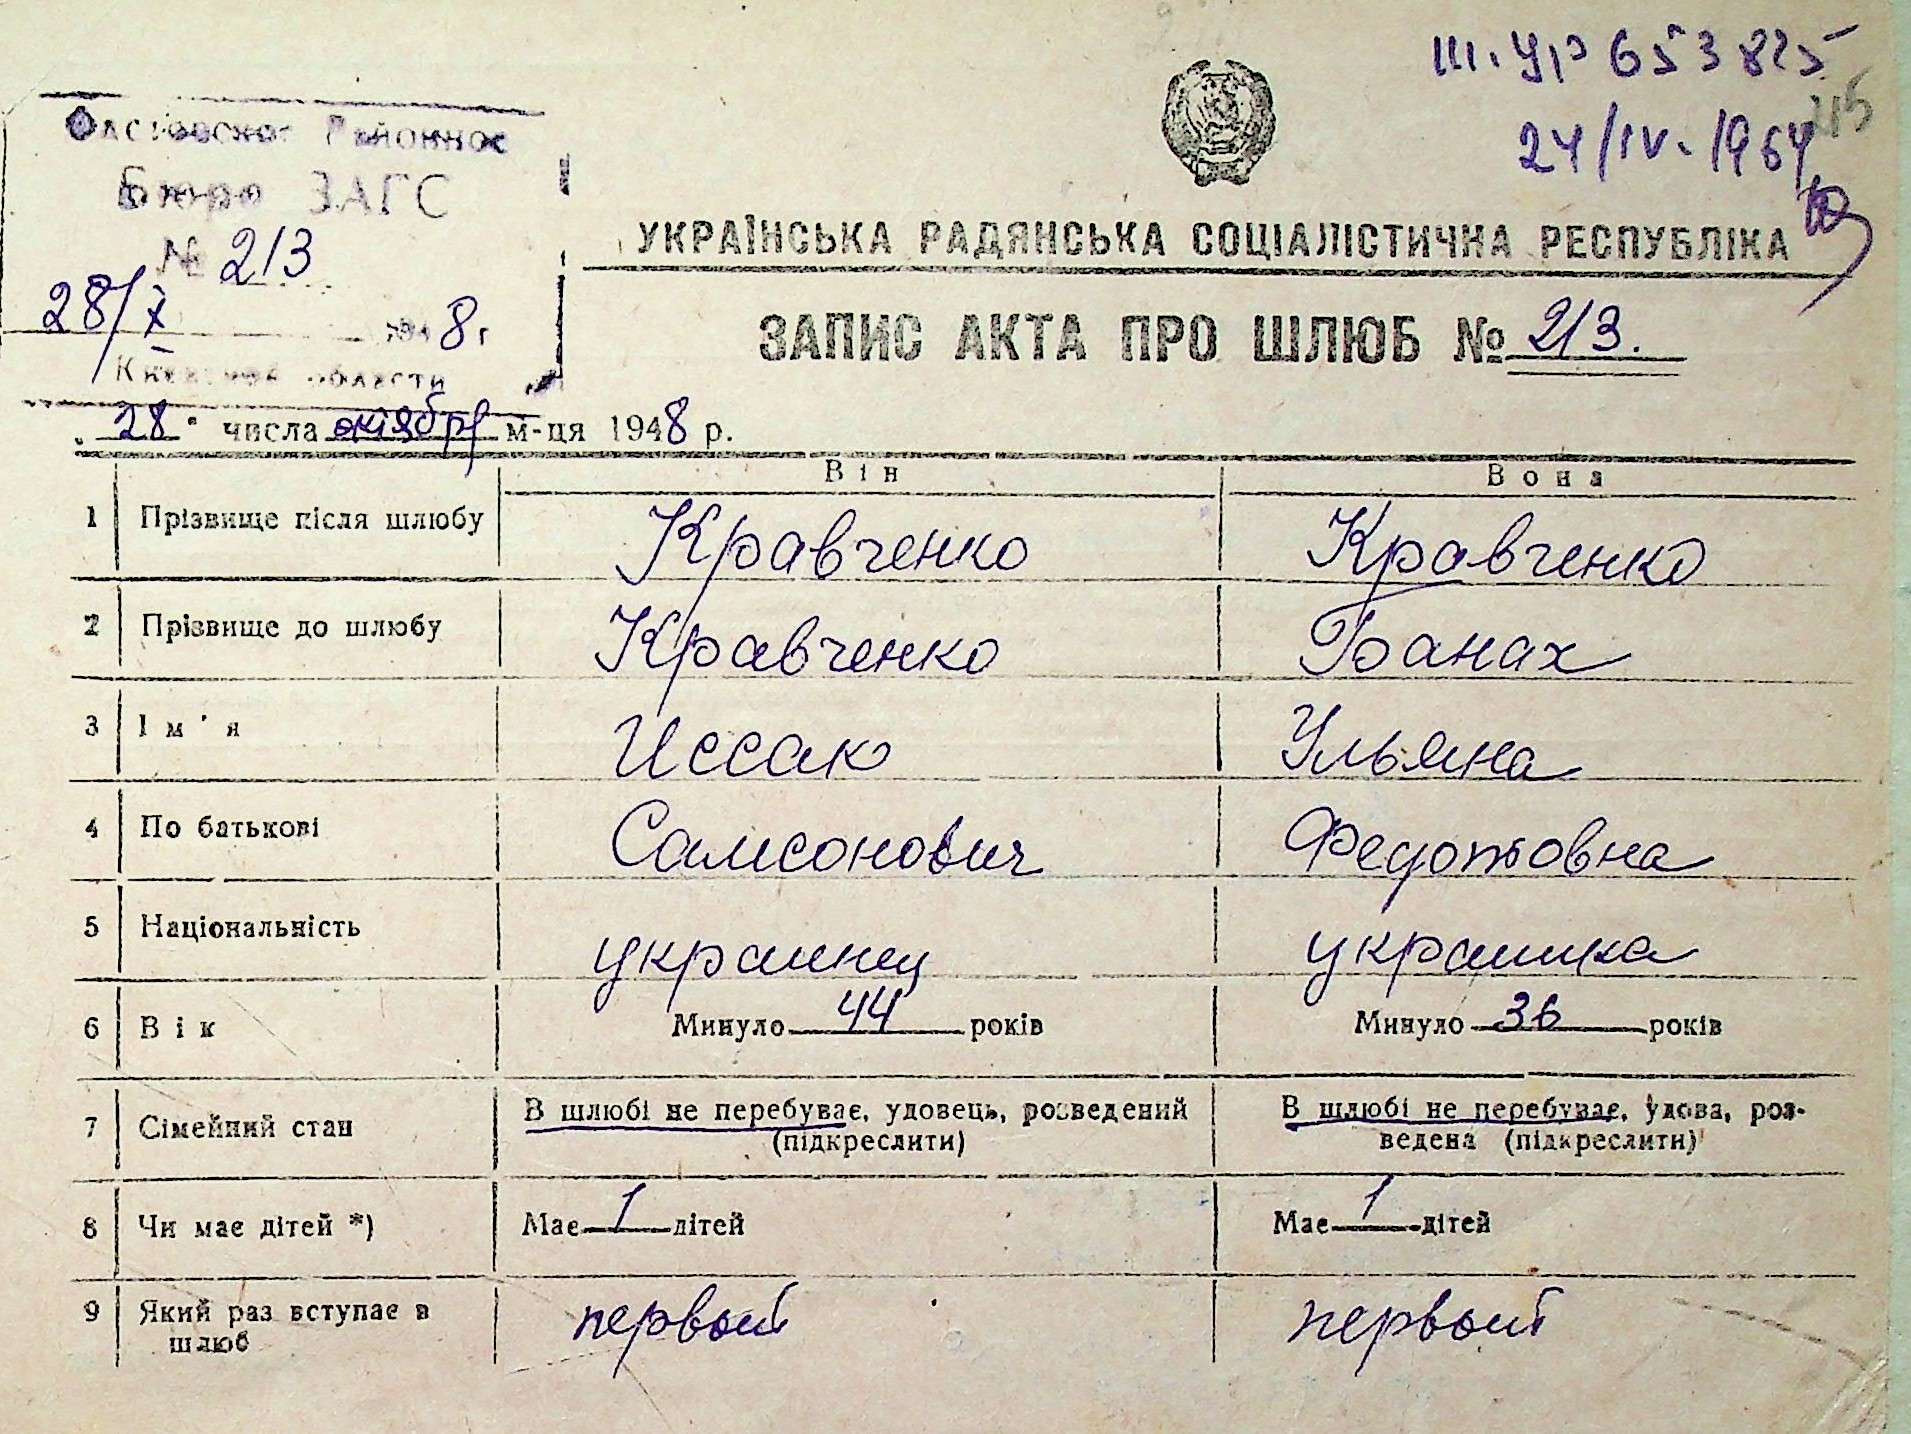 ш. ур 653825
24/IV. 1964
215
Фастовское Районное
Бюро ЗАГС
№ 213
28/X 1948 г.
Киевской области
УКРАЇНСЬКА РАДЯНСЬКА СОЦІАЛІСТИЧНА РЕСПУБЛІКА
ЗАПИС АКТА ПРО ШЛЮБ № 213.
„28" числа октября м-ця 1948 р.
Він Вона
1 Прізвище після шлюбу Кравченко Кравченко
2 Прізвище до шлюбу Кравченко Банах
3 Ім'я Иссак Ульяна
4 По батькові Самсонович Федотовна
5 Національність украинец украинка
6 Вік Минуло 44 років Минуло 36 років
7 Сімейний стан В шлюбі не перебуває, удовець, розведений (підкреслити) В шлюбі не перебуває, удова, роз-
ведена (підкреслити)
8 Чи має дітей *) Має 1 дітей Має 1 дітей
9 Який раз вступає в шлюб первый первый